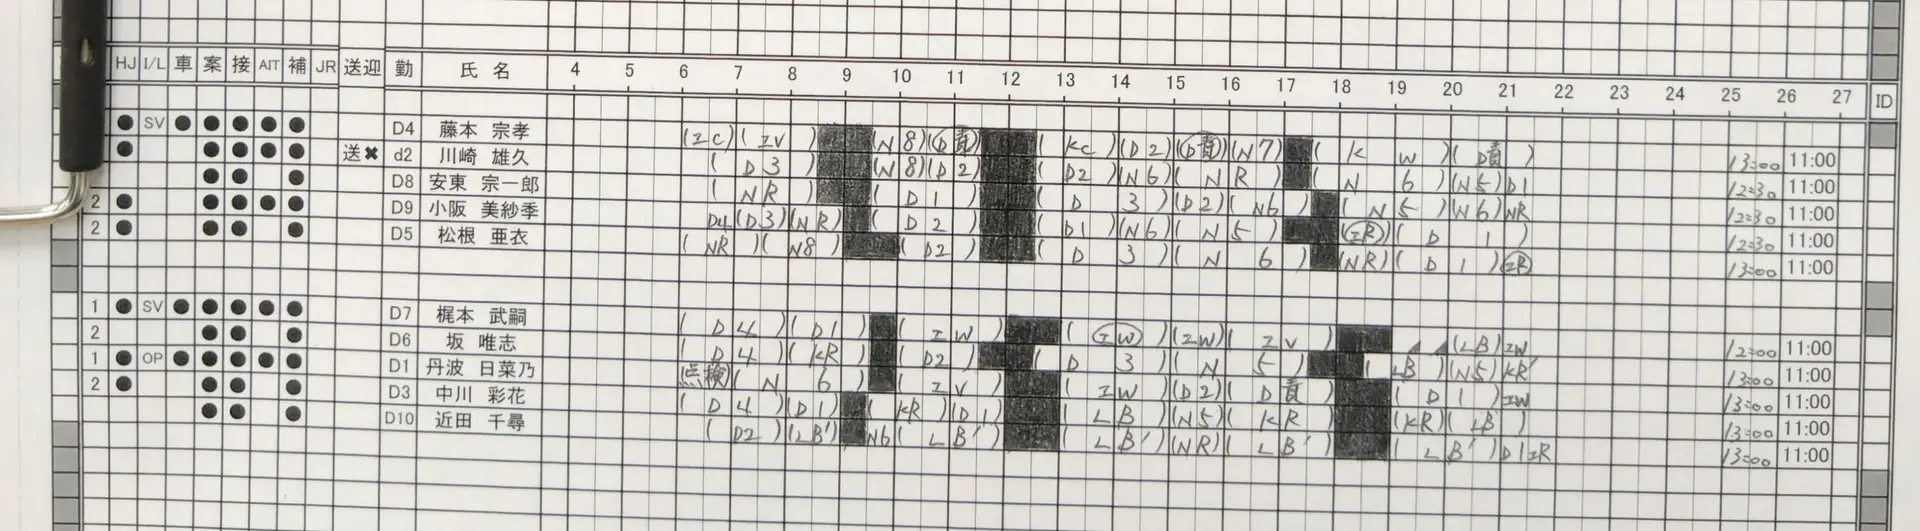 HJ I/L 車 案 接 AIT 補 JR 送迎 勤 氏 名 4 5 6 7 8 9 10 11 12 13 14 15 16 17 18 19 20 21 22 23 24 25 26 27 ID
● SV ● ● ● ● ● D4 藤本 宗孝 (IC)(IV) (N8)(D責) (KC)(D2)(D責)(N7) (KW)(D責) 13:00 11:00
● ● ● ● ● 送✖ d2 川崎 雄久 (D3) (N8)(D2) (D2)(N6)(NR) (N6)(N5)D1 12:30 11:00
● ● ● D8 安東 宗一郎 (NR) (D1) (D3)(D2)(N6) (N5)(N6)NR 12:30 11:00
2 ● ● ● ● ● D9 小阪 美紗季 D4(D3)(NR) (D2) (D1)(N6)(N5) (IR)(D1) 12:30 11:00
2 ● ● ● ● D5 松根 亜衣 (NR)(N8) (D2) (D3)(N6) (NR)(D1)IR 13:00 11:00
1 ● SV ● ● ● ● ● D7 梶本 武嗣 (D4)(D1) (IW) (IW)(IW)(IV) (LB)IW 12:00 11:00
2 ● ● ● D6 坂 唯志 (D4)(KR) (D2) (D3)(N5) (LB)(N5)KR' 13:00 11:00
1 ● OP ● ● ● ● ● D1 丹波 日菜乃 点検(N6) (IV) (IW)(D2)(D責) (D1)IW 13:00 11:00
2 ● ● ● ● D3 中川 彩花 (D4)(D1) (KR)(D1) (LB)(N5)(KR) (KR)(LB) 13:00 11:00
● ● ● D10 近田 千尋 (D2)(LB') N6(LB') (LB')(NR)(LB') (LB')D1IR 13:00 11:00